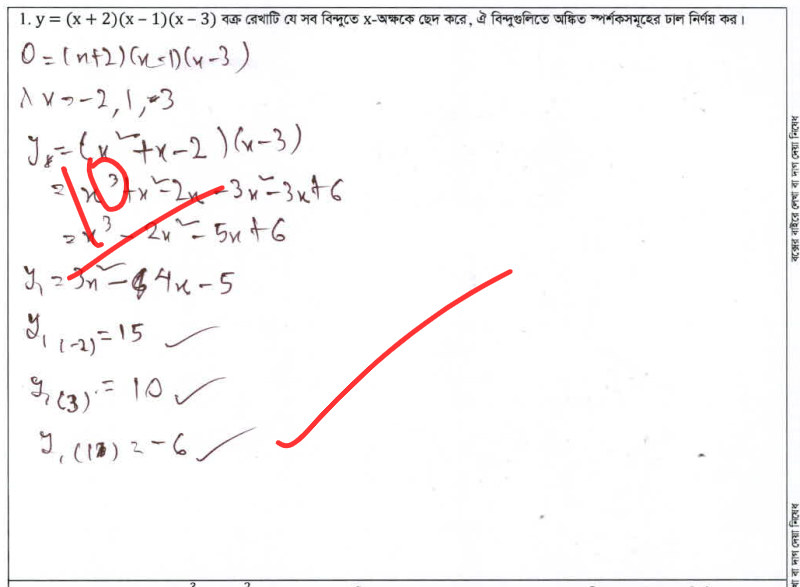 1. y = (x + 2)(x − 1)(x − 3) বক্র রেখাটি যে সব বিন্দুতে x-অক্ষকে ছেদ করে, ঐ বিন্দুগুলিতে অঙ্কিত স্পর্শকসমূহের ঢাল নির্ণয় কর।
0 = (x+2)(x-1)(x-3)
x = -2, 1, 3
y = (x²+x-2)(x-3)
10
= x³+x²-2x-3x²-3x+6
= x³-2x²-5x+6
y₁ = 3x²-4x-5
y₁(-2) = 15 ✓
y₁(3) = 10 ✓
y₁(1) = -6 ✓
বক্সের বাইরে লেখা বা দাগ দেয়া নিষেধ
খা বা দাগ দেয়া নিষেধ